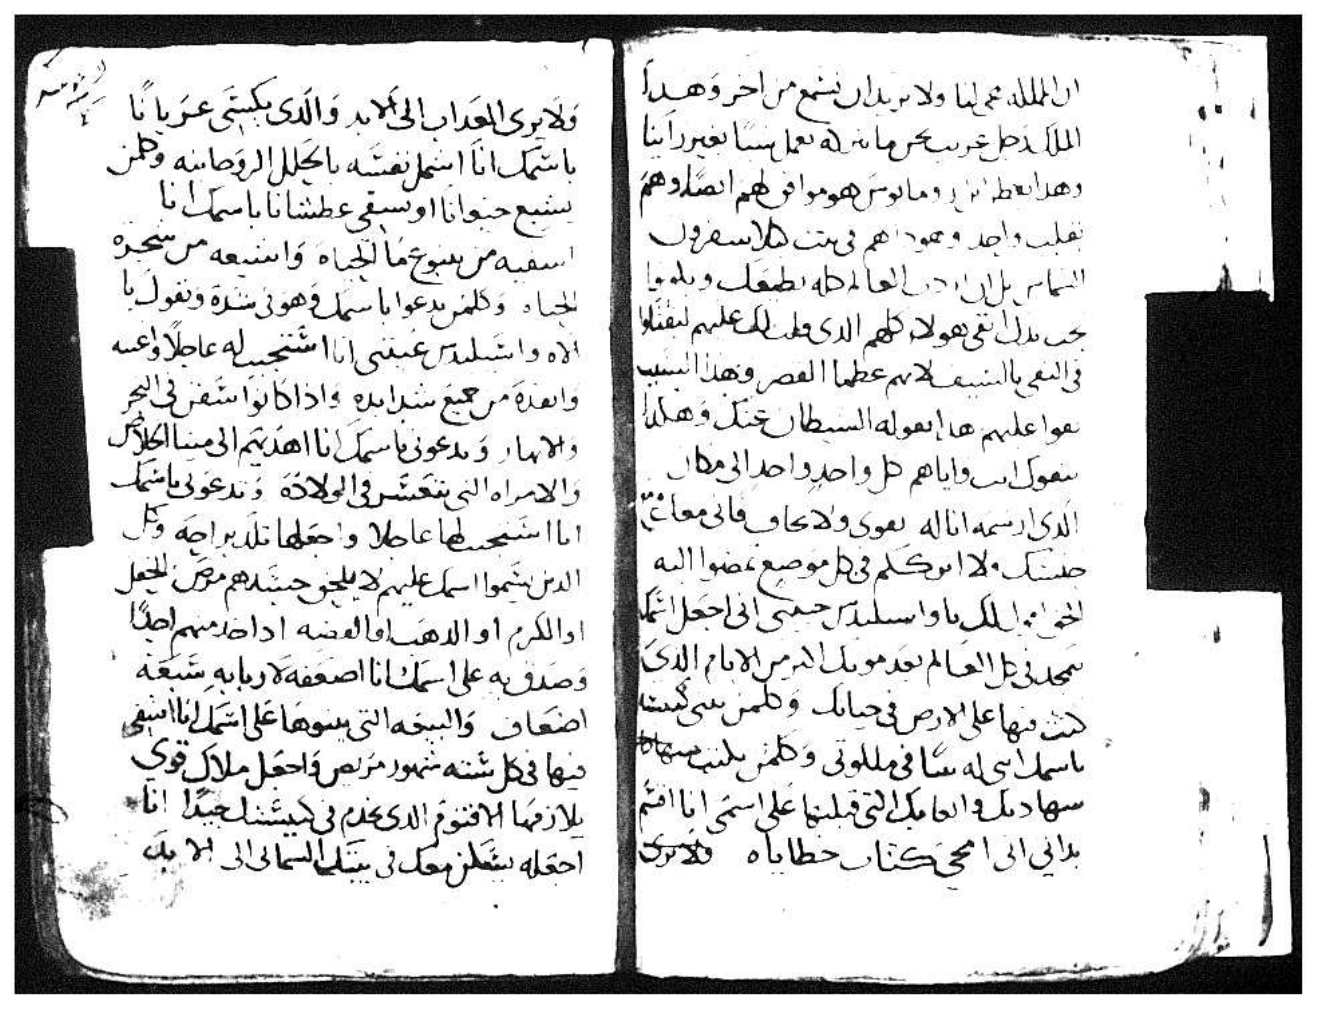 ان المملكه مجمى لنا ولا نريد ان نسمع من اخر وهذا
الملك رجل غريب نحن ما نتركه يعمل شيا بغير راينا
وهذا ايضا ومانوس هو موافق لهم ايضا وهم
بقلب واحد وهوذا هم في بيت
بل ان اردت العالم كله يطيعك
يجب بذلك انفي هولاء كلهم الذي عليهم ليقتلوا
في النفي بالسيف لانهم عظما القصر وهذا السبب
عليهم هذا يقوله الشيطان عنك وهكذا
ينفوك انت واياهم كل واحد واحد الى مكان
الذي ارسمه انا له تقوى ولا تخاف فاني معك
جنسك ولا اتركك في كل موضع تمضوا اليه
الحق اقول لك يا واسيليدس حبيبي انى اجعل اسمك
يتمجد في كل العالم بعد موتك اكثر من الايام الذي
كنت فيها على الارض في حياتك وكلمن يبني كنيسه
باسمك ابني له بيتا في ملكوتي وكلمن يكتب
شهادتك واتعابك التي قبلتها على اسمي انا اقسم
بذاتي انى امحي كتاب خطاياه ولا يرى
ولا يرى العذاب الى الابد والذي يكسي عريانا
باسمك انا اشمل نفسه بالحلل الروحانيه وكلمن
يشبع جيعانا او يسقي عطشانا باسمك انا
اسقيه من ينبوع ما الحياه واشبعه من شجرة
الحياه وكلمن يدعوا باسمك وهو في شدة ويقول يا
الاه واسيليدس عينني انا استجيب له عاجلا واعينه
وانقذه من جميع شدايده واذا كانوا سفن في البحر
والانهار ويدعوني باسمك انا اهديهم الى مينا الخلاص
والامراه التي تتعسر في الولادة وتدعوني باسمك
انا استجيب لها عاجلا واجعلها تلد براحه وكل
الذين يسموا اسمك عليهم لا يلحق جسدهم مرض الحقل
او الكرم او الدهب او الفضه اذا احد منهم احدا
وصدق به على اسمك انا اضعفه لاربابه سبعة
اضعاف والبيعه التي يبنوها على اسمك انا اشفي
فيها في كل سنه شهور مريض واجعل ملاك قوي
يلازمها الاقنوم الذي يخدم في كنيستك جيدا انا
اجعله يسكن معك في بيتك السمائي الى الابد